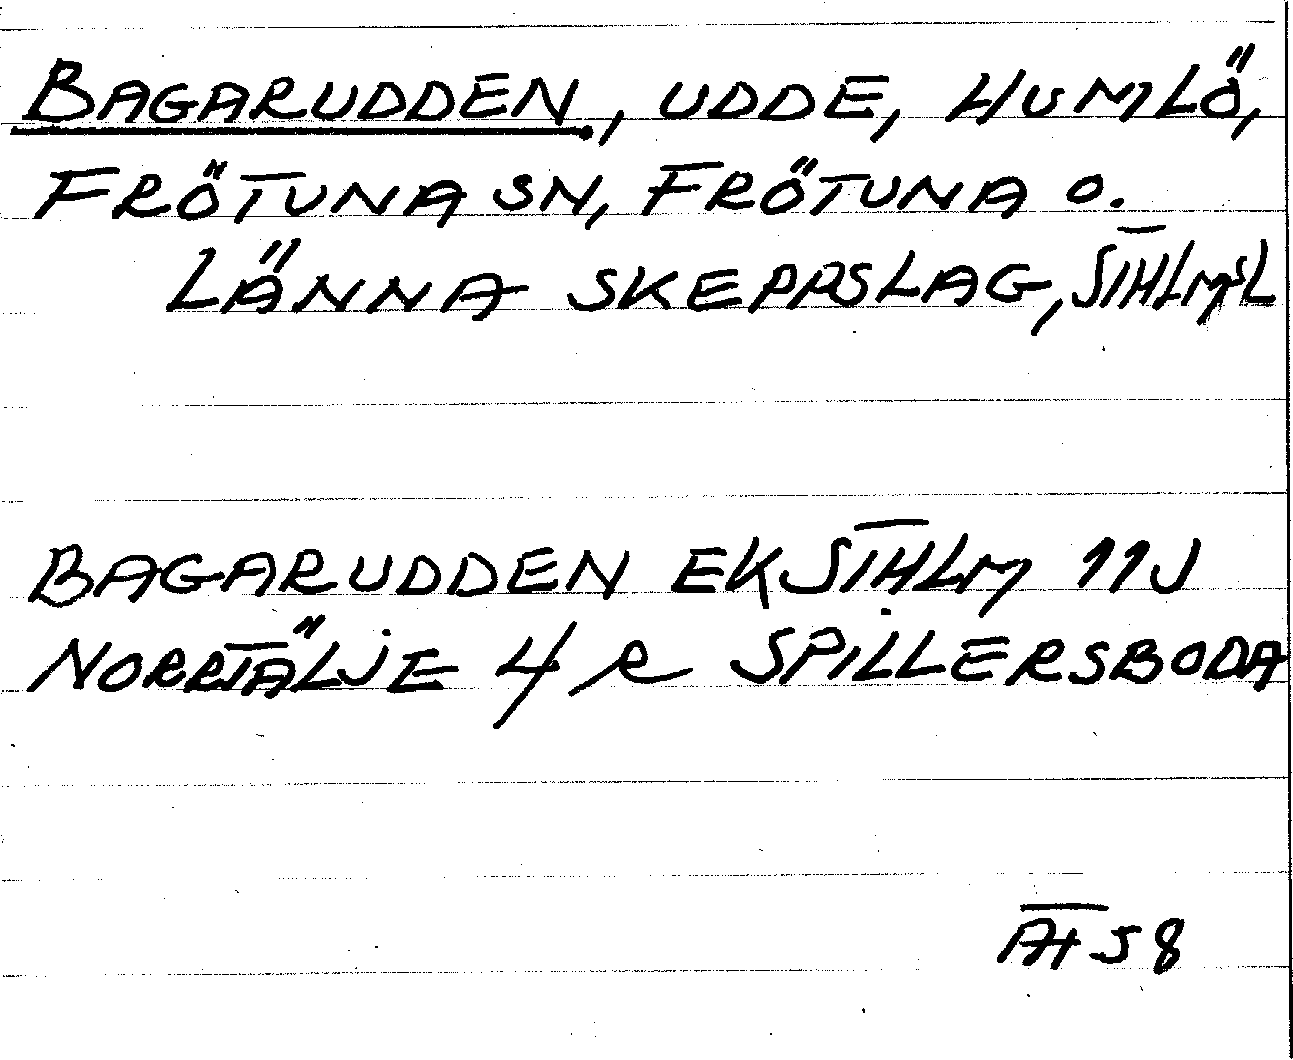 BAGARUDDEN, UDDE, HUMLÖ,
FRÖTUNA SN, FRÖTUNA O.
LÄNNA SKEPPSLAG, STHLMSL
BAGARUDDEN EKSTHLM 11J
NORRTÄLJE 4 R SPILLERSBODA
58